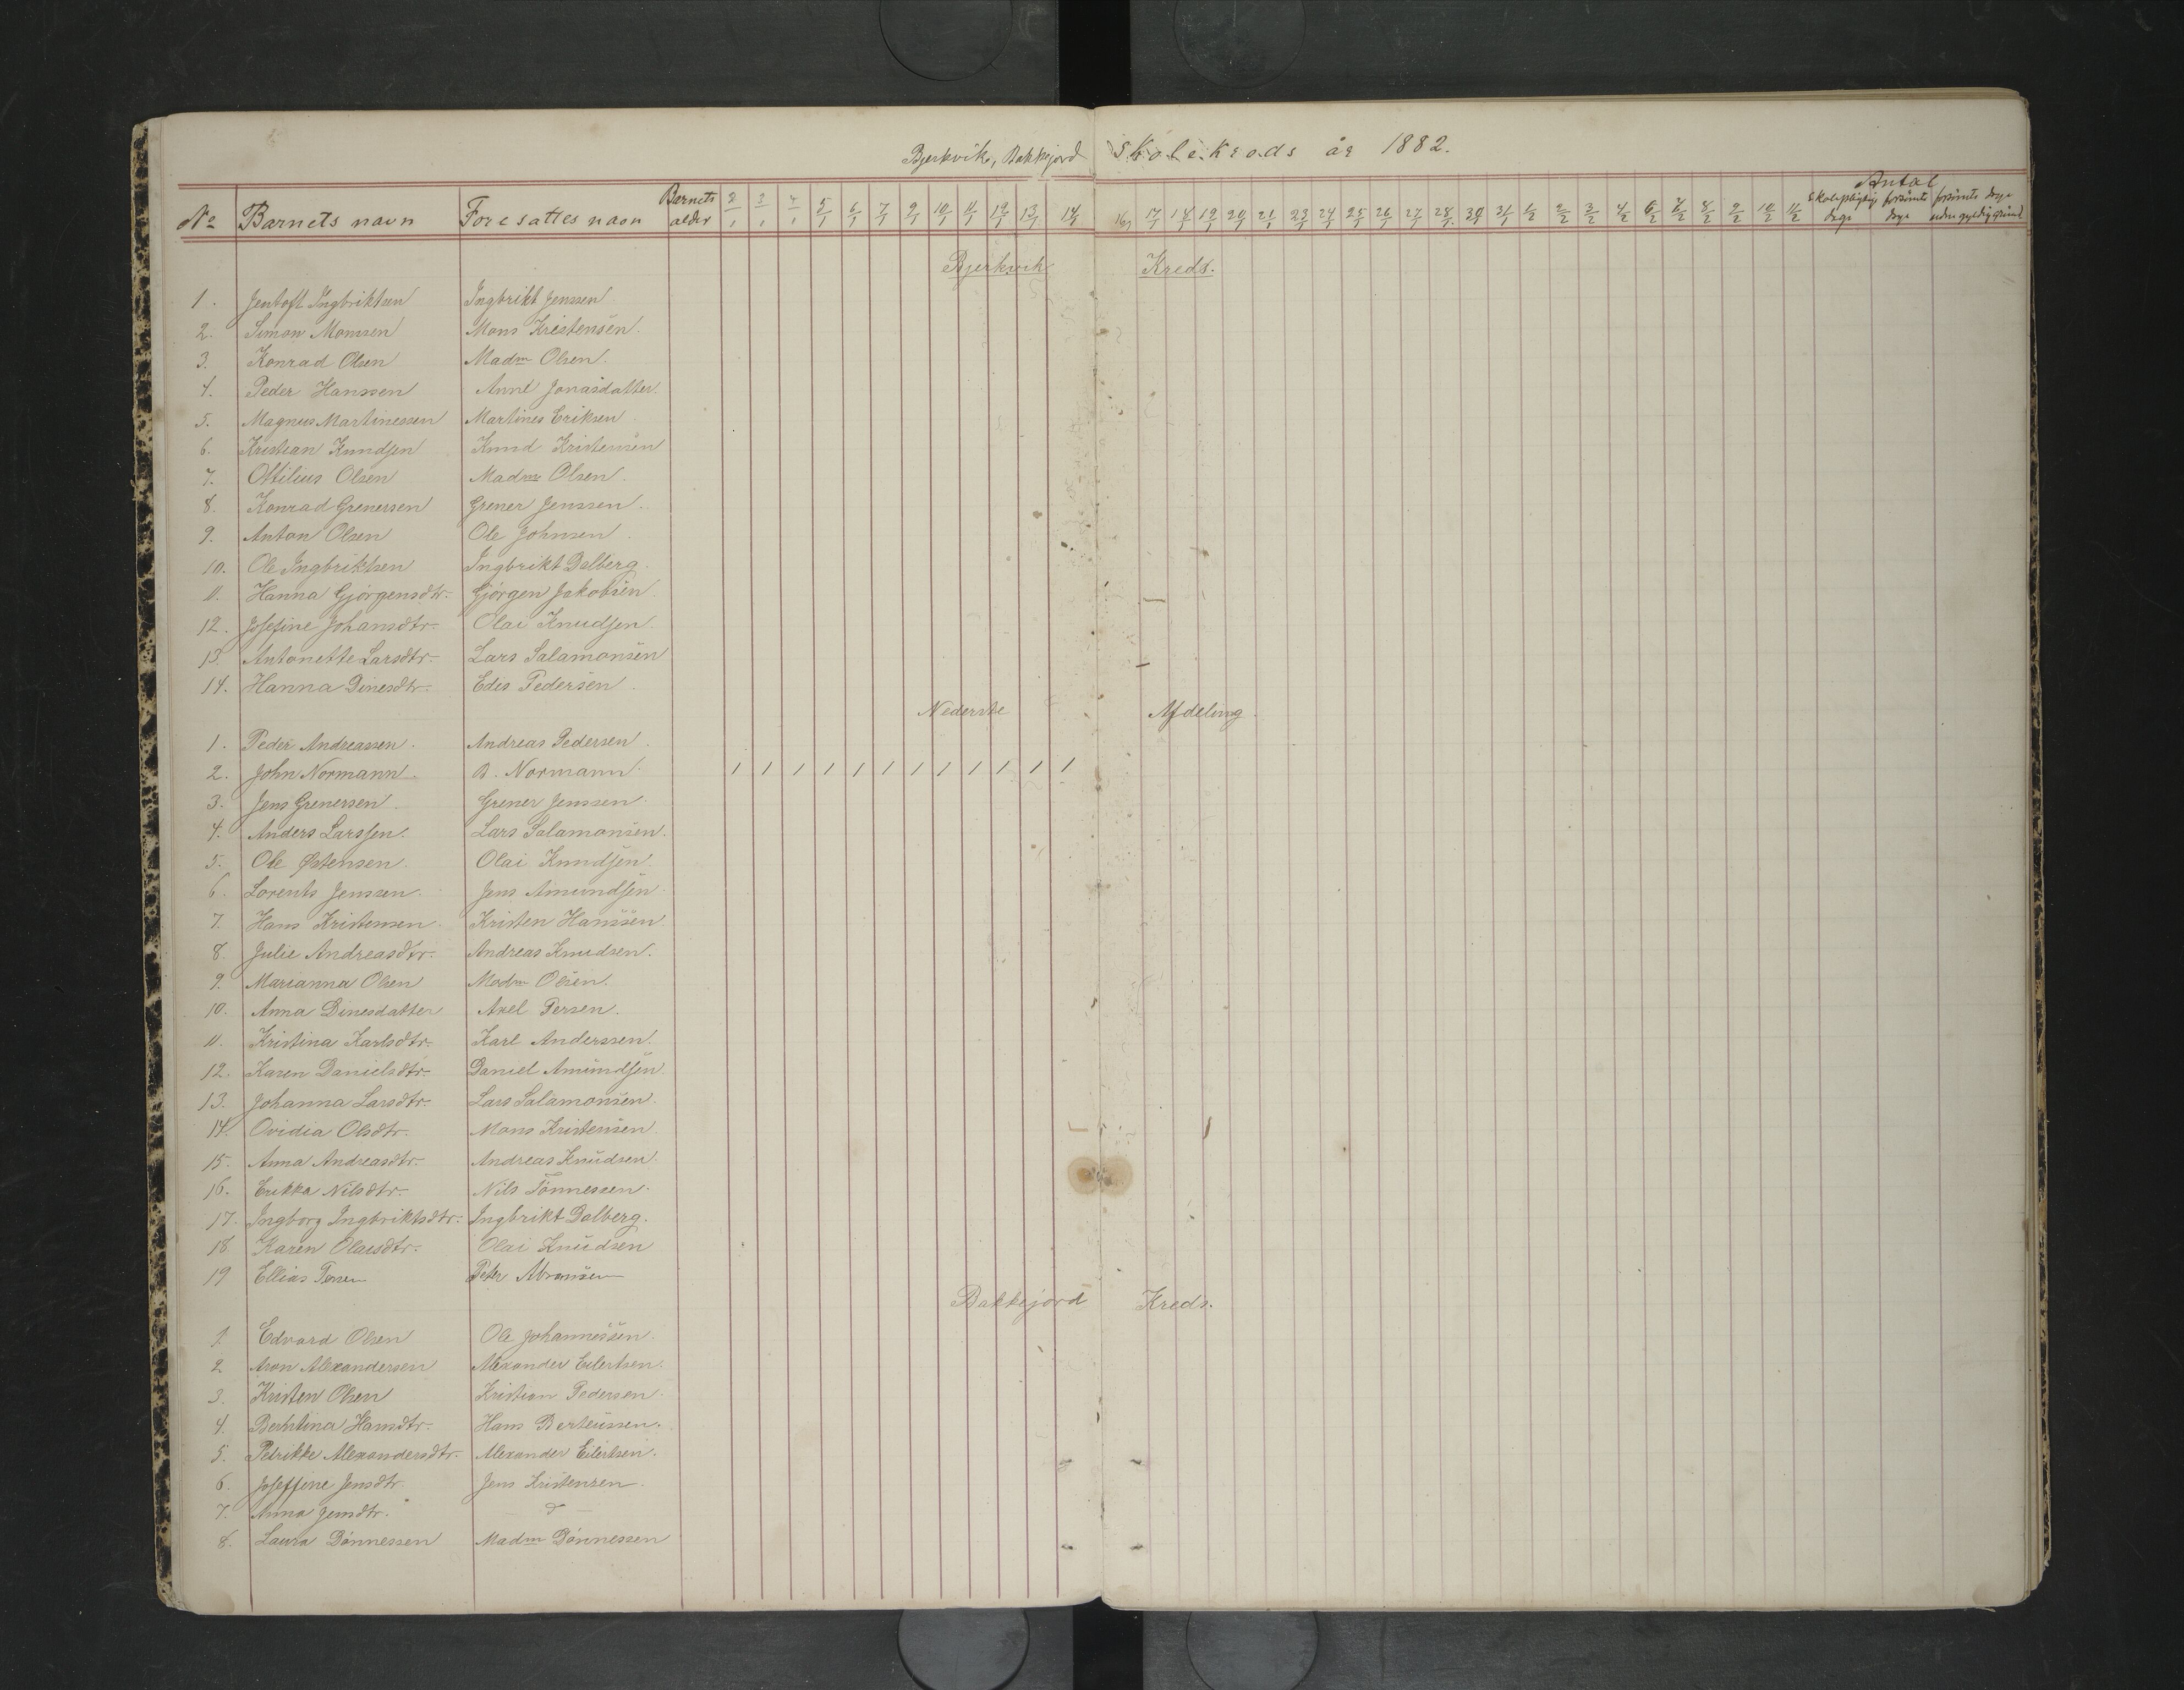 Bjerkvik, Bakkejord Skolekreds år 1882.
No Barnets navn Foresattes navn Barnets alder 2/1 3/1 4/1 5/1 6/1 7/1 9/1 10/1 11/1 12/1 13/1 14/1 16/1 17/1 18/1 19/1 20/1 21/1 23/1 24/1 25/1 26/1 27/1 28/1 30/1 31/1 1/2 2/2 3/2 4/2 6/2 7/2 8/2 9/2 10/2 11/2 Antal Skolepligtige dage forsømte dage forsømte dage uden gyldig grund
Bjerkvik Kreds.
1. Jentoft Ingbriktsen Ingbrikt Jenssen
2. Simon Monssen Mons Kristensen.
3. Konrad Olsen Madm Olsen.
4. Peder Hanssen Anne Jonasdatter.
5. Magnus Martinessen Martines Eriksen
6. Kristian Knudsen Knud Kristensen
7. Ottilius Olsen Madm Olsen.
8. Konrad Grenersen Grener Jenssen.
9. Anton Olsen Ole Johnsen.
10. Ole Ingbriktsen Ingbrikt Dalberg.
11. Hanna Gjörgensdtr. Gjörgen Jakobsen
12. Josefine Johansdtr. Olai Knudsen
13. Antonette Larsdtr. Lars Salamonsen
14. Hanna Dinesdtr. Edis Pedersen.
Nederste Afdeling.
1. Peder Andreassen. Andreas Pedersen.
2. John Normann. B. Normann. / / / / / / / / / / / /
3. Jens Grenersen. Grener Jenssen.
4. Anders Larssen. Lars Salamonsen.
5. Ole Østensen. Olai Knudsen.
6. Lorents Jenssen. Jens Amundsen.
7. Hans Kristensen. Kristen Hanssen.
8. Julie Andreasdtr. Andreas Knudsen.
9. Marianna Olsen Madm Olsen.
10. Anna Dinesdatter Axel Persen.
11. Kristina Karlsdtr. Karl Anderssen.
12. Karen Danielsdtr. Daniel Amundsen.
13. Johanna Larsdtr. Lars Salamonsen.
14. Ovidia Olsdtr. Mons Kristensen.
15. Anna Andreasdtr. Andreas Knudsen.
16. Erikka Nilsdtr. Nils Tönnessen.
17. Ingborg Ingbriktsdtr. Ingbrikt Dalberg.
18 Karen Olaisdtr. Olai Knudsen
19 Ellias Peter Abramsen
Bakkejord Kreds.
1. Edvard Olsen Ole Johannessen.
2 Aron Alexandersen Alexander Eilertsen.
3. Kristen Olsen Kristian Pedersen.
4. Berhtina Hansdtr. Hans Berteussen.
5. Petrikke Alexandersdtr. Alexander Eilertsen.
6. Joseffine Jensdtr. Jens Kristensen.
7. Anna Jensdtr.
8. Laura Dönnessen Madm Dönnessen